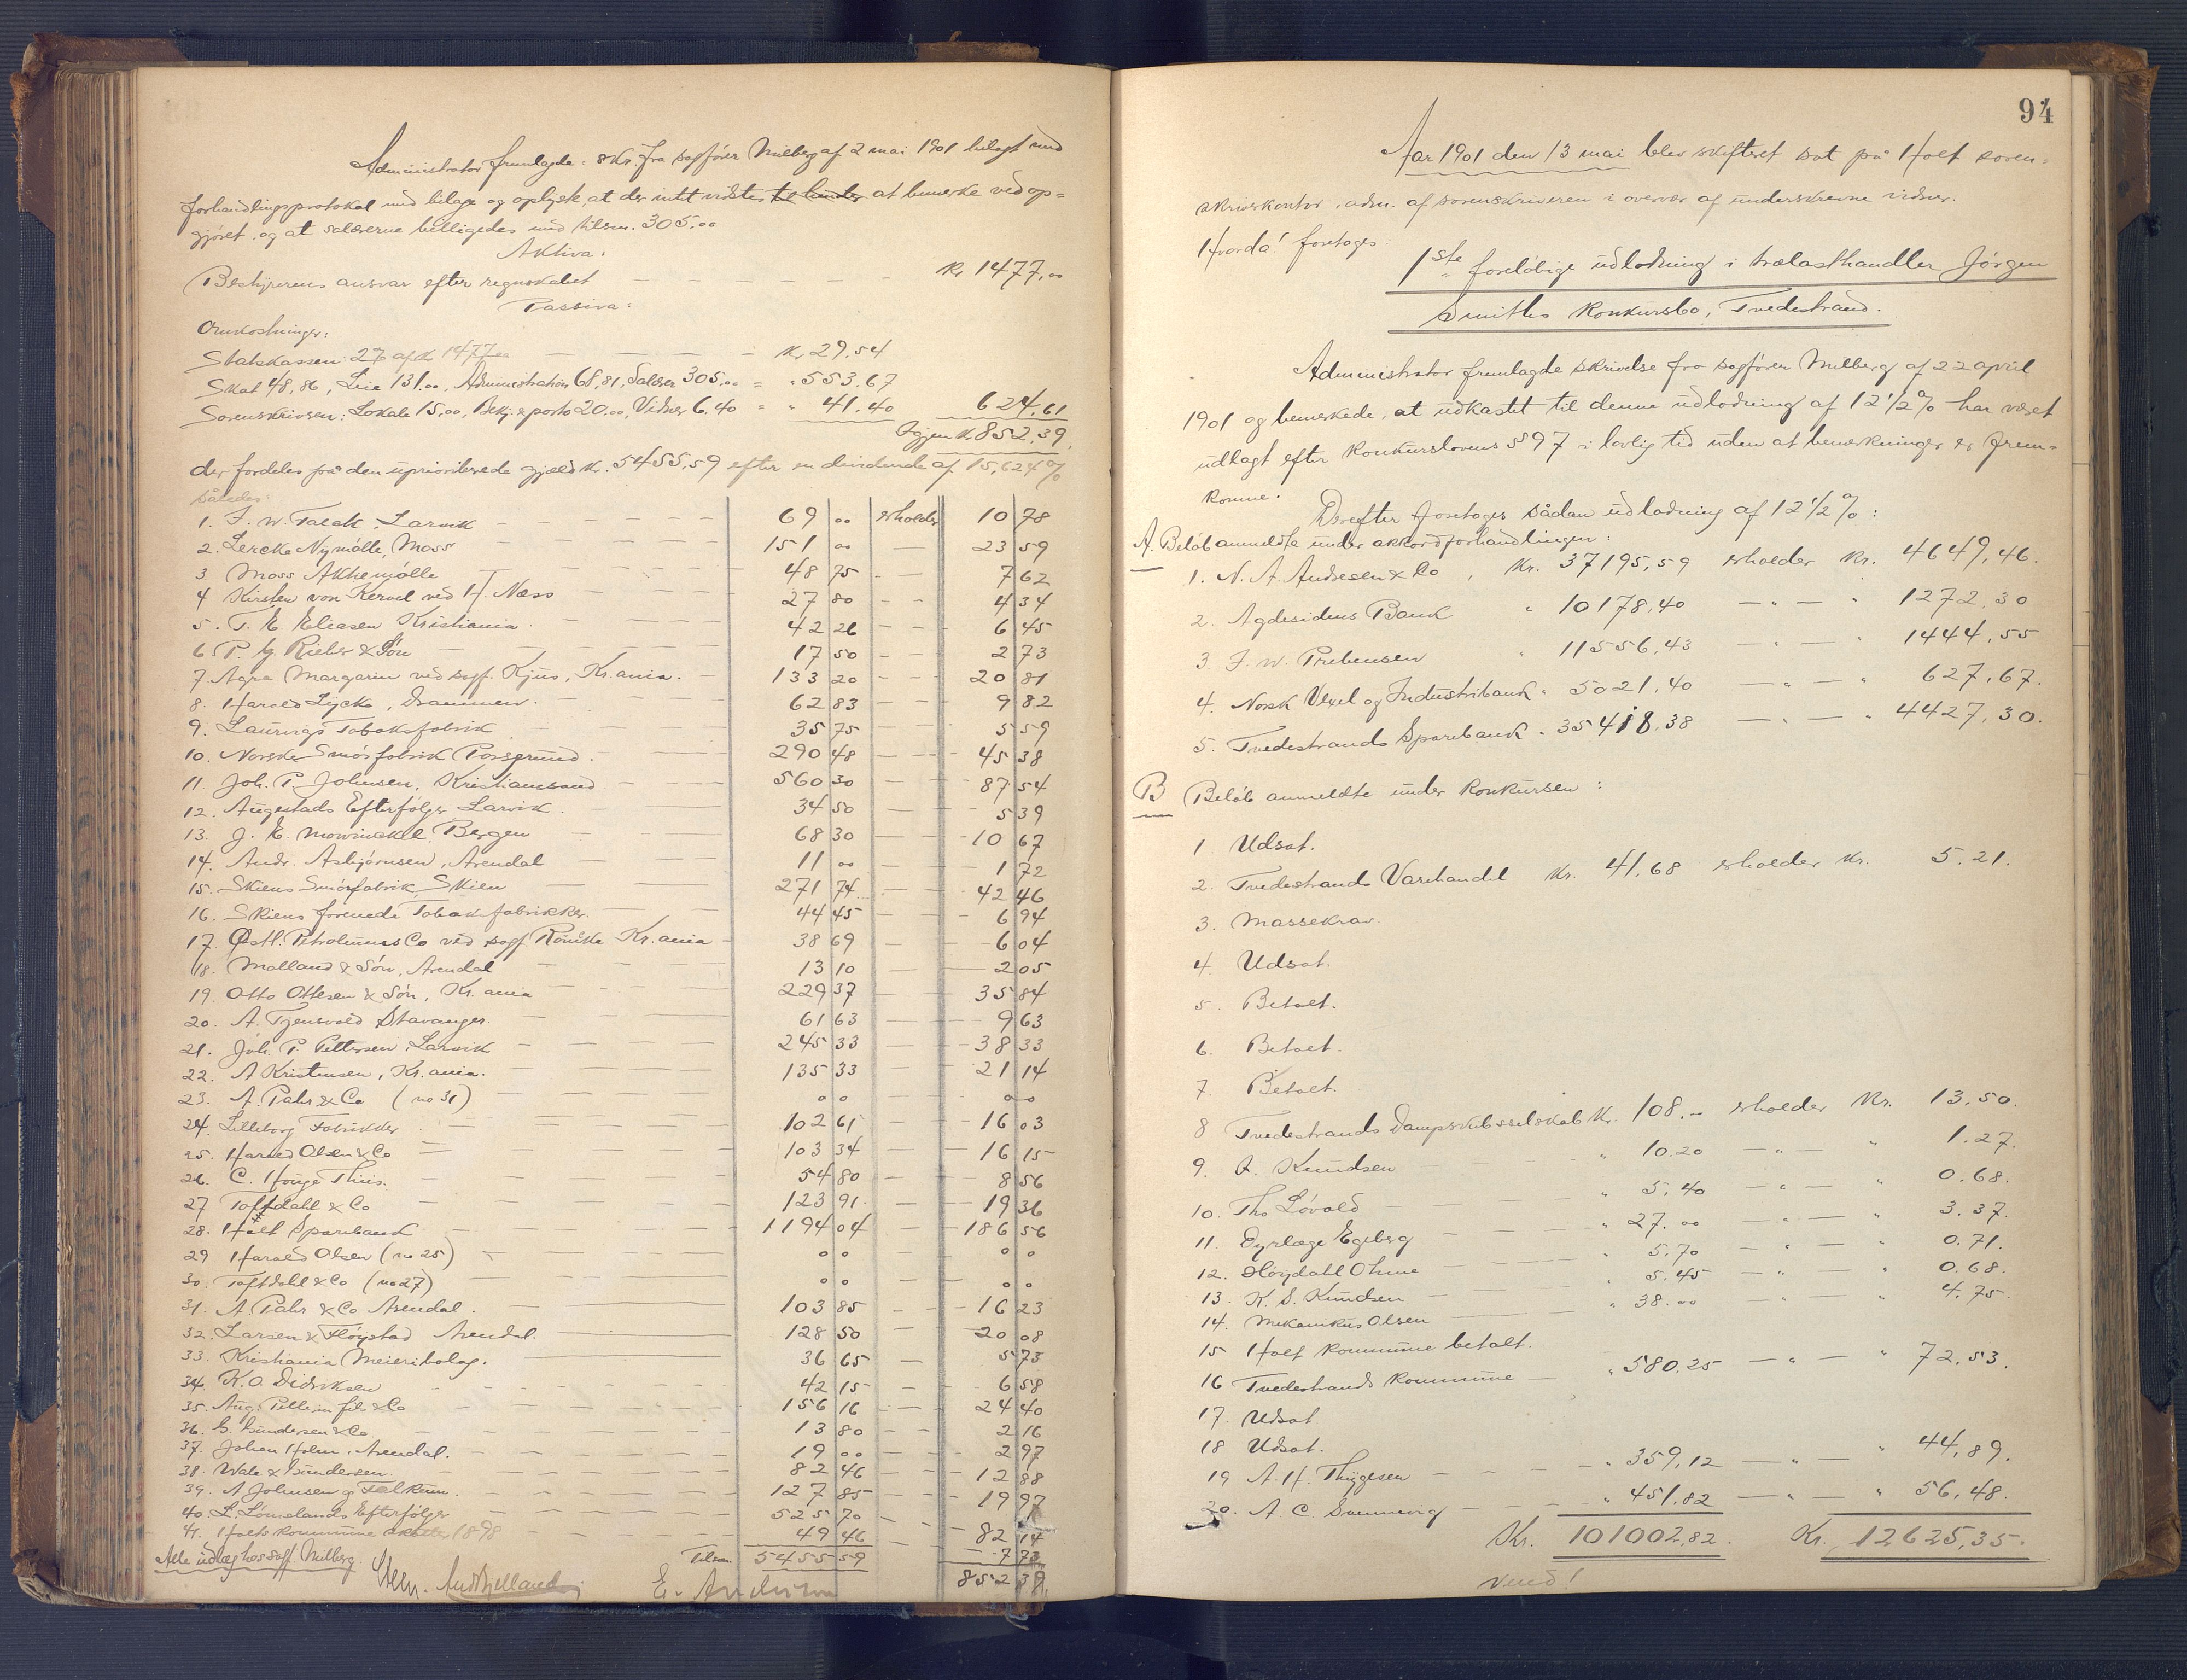 Administrator fremlagde: 8 Kr. fra sagfører Milberg af 2 mai 1901 bilagt med
forhandlingsprotokol med bilage og oplyste, at der intet vidstes til hinder at bemerke ved op=
gjøret og at salærerne billigedes med tilsm. 305.00
Aktiva:
Bestyrerens ansvar efter regnskabet — — — — — Kr 1477,00
Passiva:
Omkostninger:
Statskassen 2% af Kr 1477 00 — — — — Kr 29.54
Skat 48,86, Leie 131.00, Administration 68,81, Salær 305,00 = " 553.67
Sorenskriveren: Lokale 15,00, Bekj. & porto 20,00, Vidner 6.40 = " 41.40 624,61
Igjen Kr 852,39
der fordeles på den uprioriterede gjæld Kr. 5455,59 efter en dividende af 15,624%
således:
1. F. W. Falck, Larvik — — 69 00 erholder 10 78
2. Lerche Nymølle, Moss — — 151 00 — 23 59
3 Moss Aktiemølle — — 48 75 — 7 62
4 Kirsten von Kervel ved H. Næss — — 27 80 — 4 34
5. T. E. Eliasen Kristiania — — 42 26 — 6 45
6 P. G. Rieber & Søn — — 17 50 — 2 73
7. Agra Margarin ved sagf. Kjus, Kr.ania. — 133 20 — 20 81
8. Harald Lycke, Drammen. — 62 83 — 9 82
9. Laurings Tobaksfabrik — 35 75 — 5 59
10. Norske Smørfabrik Porsgrund. — 290 48 — 45 38
11 Joh. P. Johnsen, Kristianssand — 560 30 — 87 54
12. Augestads Efterfølger Larvik. — 34 50 — 5 39
13. J. E. Mowinckel, Bergen — 68 30 — 10 67
14. Andr. Asbjørnsen, Arendal — 11 00 — 1 72
15. Skiens Smørfabrik, Skien — 271 74 — 42 46
16. Skiens forenede Tobaksfabrikker. — 44 45 — 6 94
17. Østl. Petroleums Co ved sagf. Kr.ania — 38 69 — 6 04
18. Molland & Søn, Arendal — 13 10 — 2 05
19. Otto Ottesen & Søn, Kr.ania — 229 37 — 35 84
20. A. Tjensvold Stavanger. — 61 63 — 9 63
21. Joh. P. Pettersen, Larvik — 245 33 — 38 33
22. A Kristensen, Kr.ania. — 135 33 — 21 14
23. A. Pahr & Co (no 31) — 0 0 — 0 0
24. Lilleborg Fabrikker — 102 61 — 16 03
25. Harald Olsen & Co — 103 34 — 16 15
26. C. Houge Thiis. — 54 80 — 8 56
27 Toftdahl & Co — 123 91 — 19 36
28. Holt Sparebank — 1194 04 — 186 56
29 Harald Olsen (no 25) — 0 0 — 0 0
30. Toftdahl & Co (no 27) — 0 0 — 0 0
31. A. Pahr & Co Arendal. — 103 85 — 16 23
32. Larsen & Fløystad Arendal. — 128 50 — 20 08
33. Kristiania Meieribolag. — 36 65 — 5 73
34. K. O. Didriksen — 42 15 — 6 58
35. Aug. Pellerin fils & Co — 156 16 — 24 40
36. G. Gundersen & Co — 13 80 — 2 16
37. Johan Holm, Arendal. — 19 00 — 2 97
38. Wale & Gundersen. — 82 46 — 12 88
39. A Johnsen g. — 127 85 — 19 97
40. L. Lømslands Efterfølger — 525 70 — 82 14
41. Holts kommune skatter 1898 — 49 46 — 7 73
Tilsm. 5455 59 852 39
Alle udlæg hos sagf. Milberg.
E. Andersen
94
Aar 1901 den 13 mai blev skifteret sat på Holt soren=
skriverkontor, adm. af sorenskriveren i overvær af underskrevne vidner.
Hvorda! foretoges:
1ste foreløbige udlodning i trælasthandler Jørgen
Smiths konkursbo, Tvedestrand.
Administrator fremlagde skrivelse fra sagfører Milberg af 22 april
1901 og bemerkede, at udkastet til denne udlodning af 12 1/2 % har været
udlagt efter konkurslovens § 97 i lovlig tid uden at bemerkninger er frem=
komne.
Derefter foretoges sådan udlodning af 12 1/2 %:
A. Beløb anmeldte under akkordforhandlingen:
1. N. A. Andresen & Co, Kr. 37195,59 erholder Kr. 4649,46.
2. Agdesidens Bank " 10178,40 — " — " 1272,30
3. F. W. Prebensen " 11556,43 — " — " 1444,55
4. Norsk Vexel og Industribank " 5021,40 — " — " 627,67.
5. Tvedestrands Sparebank " 35418,38 — " — " 4427,30.
B Beløb anmeldte under konkursen:
1 Udsat.
2. Tvedestrands Varehandel Kr. 41,68 erholder Kr. 5.21.
3. Massekrav.
4. Udsat.
5. Betalt.
6. Betalt.
7. Betalt.
8 Tvedestrands Dampskibsselskab Kr. 108.- erholder Kr. 13,50.
9. A. Knudsen " 10.20 — " — " 1.27.
10. Ths Løvold — " 5.40 — " — " 0.68.
11. Dyrlæge Egeberg — " 27.00 — " — " 3.37.
12. Høydahl Ohme — " 5.70 — " — " 0.71.
13. K. S. Knudsen — " 5.45 — " — " 0.68.
14. Mekanikus Olsen — " 38.00 — " — " 4.75.
15 Holt kommune betalt.
16 Tvedestrands kommune — " 580.25 — " — " 72.53.
17. Udsat
18 Udsat.
19 A. H. Thygesen — " 359,12 — " — " 44,89.
20. A. C. Svennevig — " 451,82 — " — " 56,48.
Kr. 101002,82. Kr. 12625,35.
Vend!